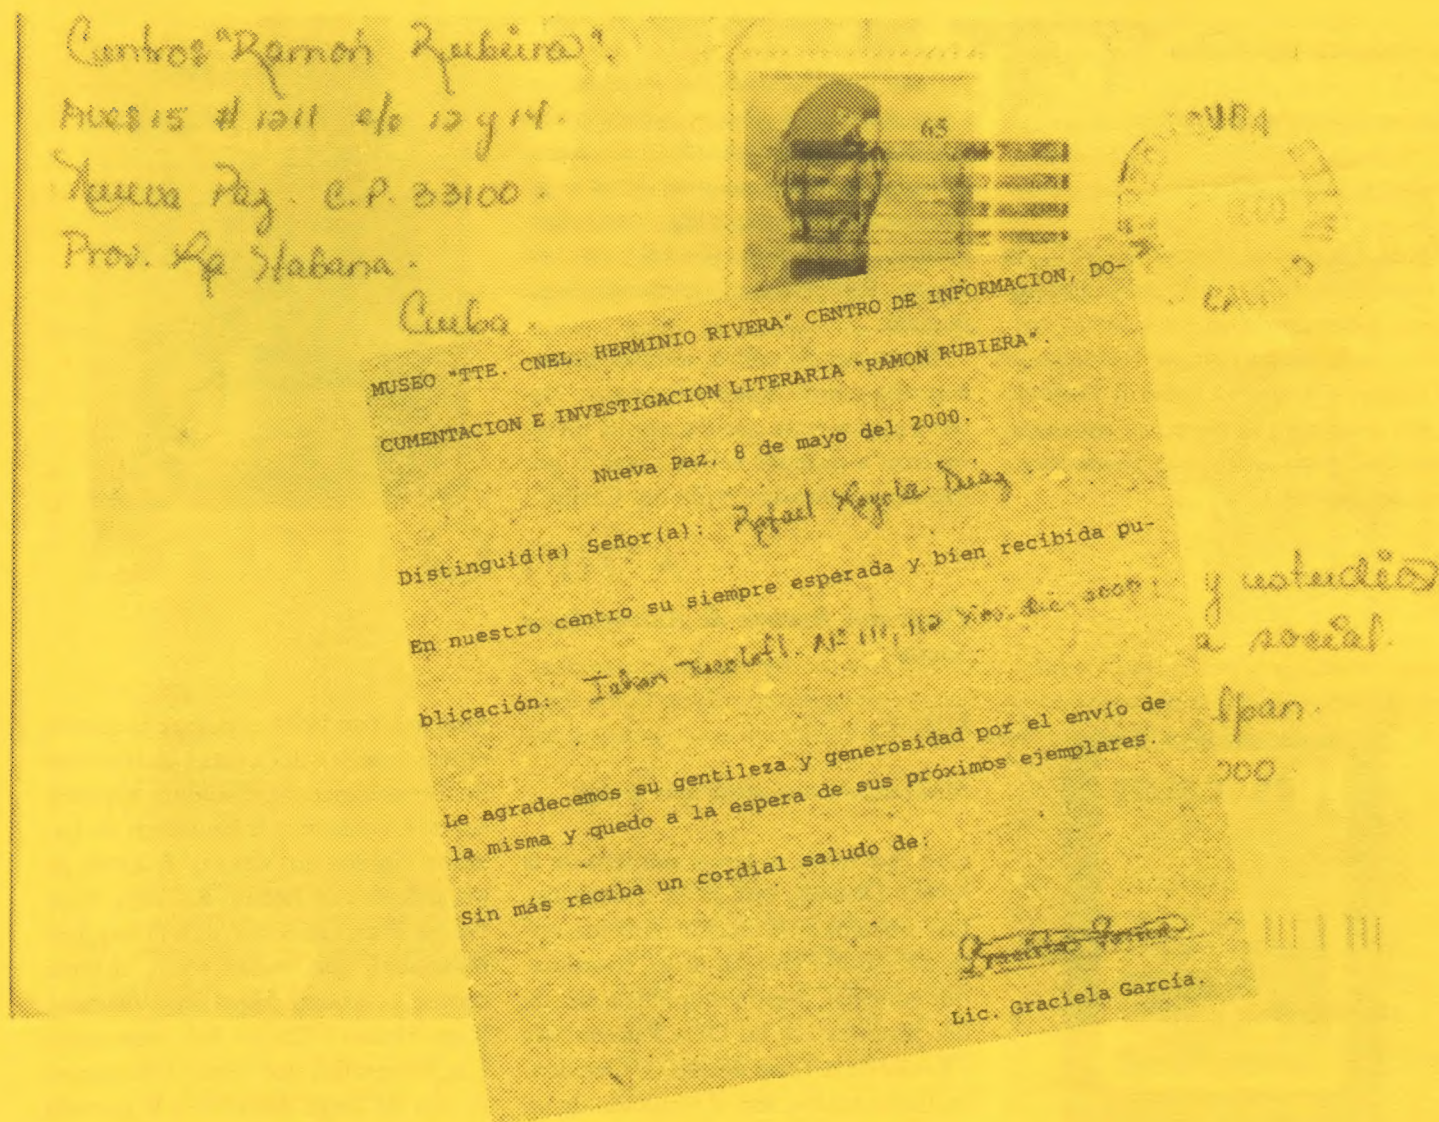 Centros "Ramon Rubiera".
Ave 15 # 1211 e/o 12 y 14.
Nueva Paz. C.P. 33100.
Prov. La Habana.
Cuba.
65
CUBA
MUSEO "TTE. CNEL. HERMINIO RIVERA" CENTRO DE INFORMACION, DO-
CUMENTACION E INVESTIGACIÓN LITERARIA "RAMON RUBIERA".
Nueva Paz, 8 de mayo del 2000.
Distinguid(a) Señor(a): Rafael Loyola Díaz
En nuestro centro su siempre esperada y bien recibida pu-
blicación: Nº 111, 112 2000
Le agradecemos su gentileza y generosidad por el envío de
la misma y quedo a la espera de sus próximos ejemplares.
Sin más reciba un cordial saludo de:
Lic. Graciela García.
y estudios
a social.
lpan.
000